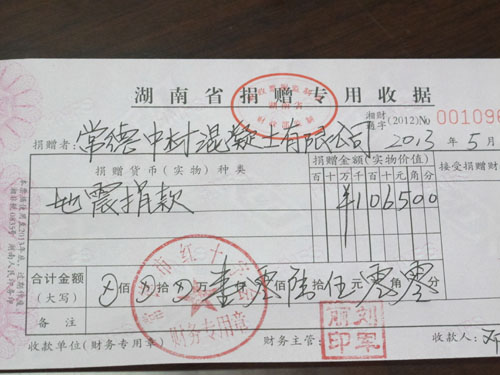 湖南省捐赠专用收据
湘财通字(2012)No 001096
捐赠者:常德中材混凝土有限公司 2013年5月
捐赠货币(实物)种类 捐赠金额(实物价值) 接受捐赠财
百十万千百十元角分
地震捐款 ¥106500
合计金额(大写) 佰拾万壹仟零佰陆拾伍元零角零分
备注
收款单位(财务专用章) 财务主管: 收款人:邓
市红十字
财务专用章
刘军丽印